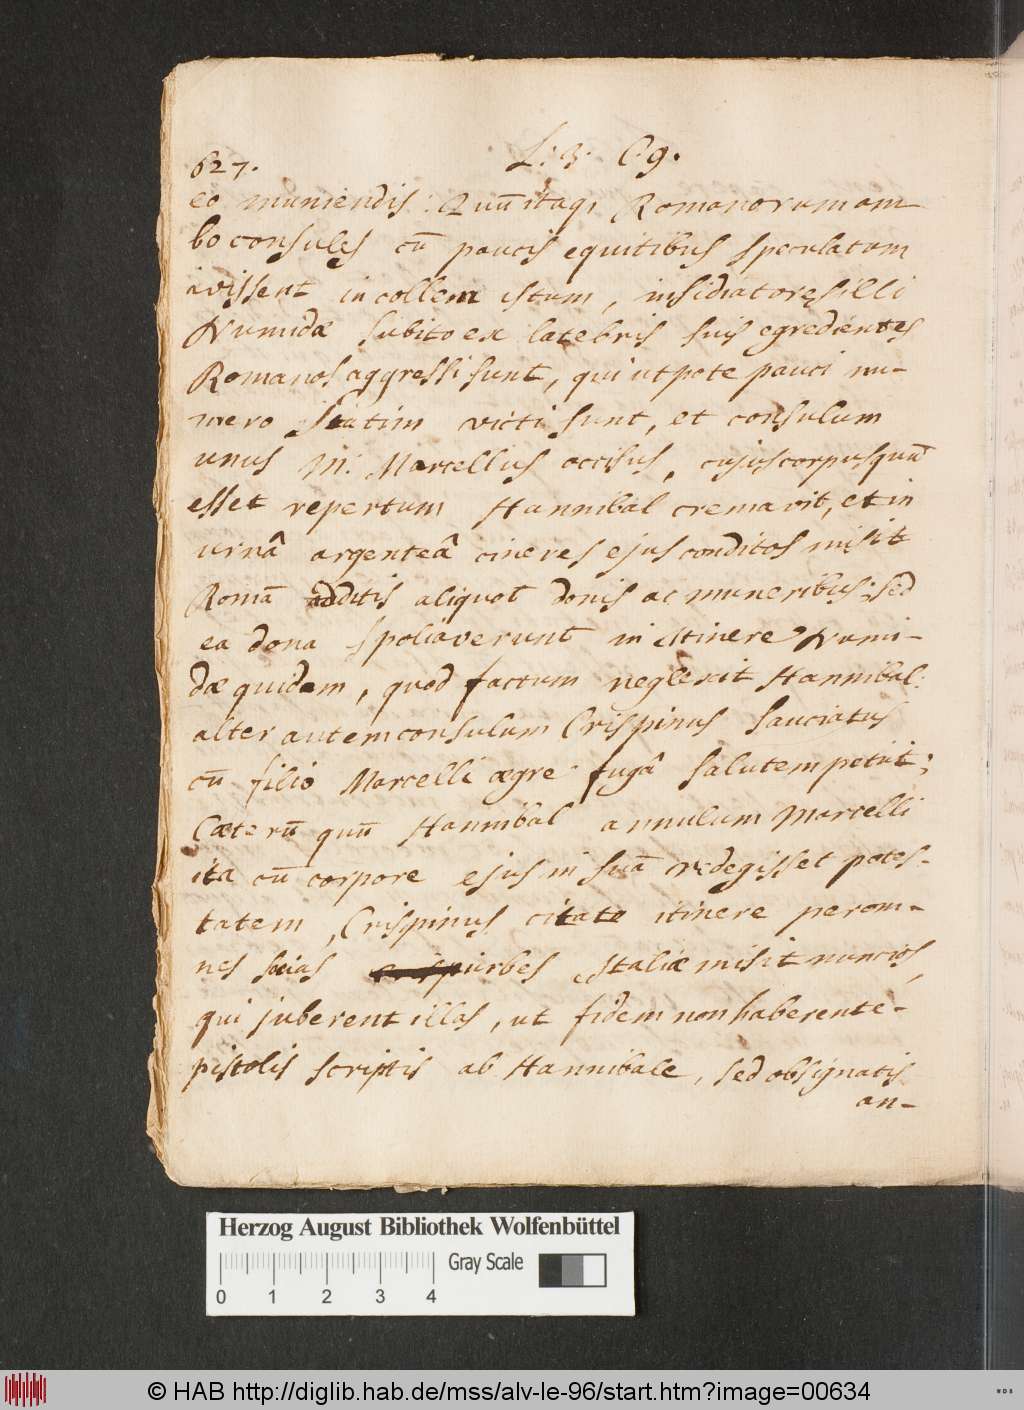 627. L: 3. C9.
eo muniendis: Quū itaq; Romanorum am
bo consules cū paucis equitibus speculatum
ivissent in collem istum, insidiatores illi
Numidæ subito ex latebris suis egredientes
Romanos aggressi sunt, qui utpote pauci nu-
mero statim victi sunt, et consulum
unus M: Marcellus occisus, cujus corpus quū
esset repertum Hannibal cremavit, et in
urnâ argenteâ cineres ejus conditos misit
Romā additis aliquot donis ac muneribus; sed
ea dona spoliaverunt in itinere Numi-
dæ quidam, quod factum neglexit Hannibal:
alter autem consulum Crispinus sauciatus
cū filio Marcelli ægre fugâ salutem petiit;
Cæterū quū Hannibal annulum Marcelli
ita cū corpore ejus in suā redegisset potes-
tatem, Crispinus citato itinere per om-
nes socias urbes Italiæ misit nuncios,
qui juberent illas, ut fidem non haberent e-
pistolis scriptis ab Hannibale, sed obsignatis
an-
Herzog August Bibliothek Wolfenbüttel
Gray Scale
0 1 2 3 4
© HAB http://diglib.hab.de/mss/alv-le-96/start.htm?image=00634